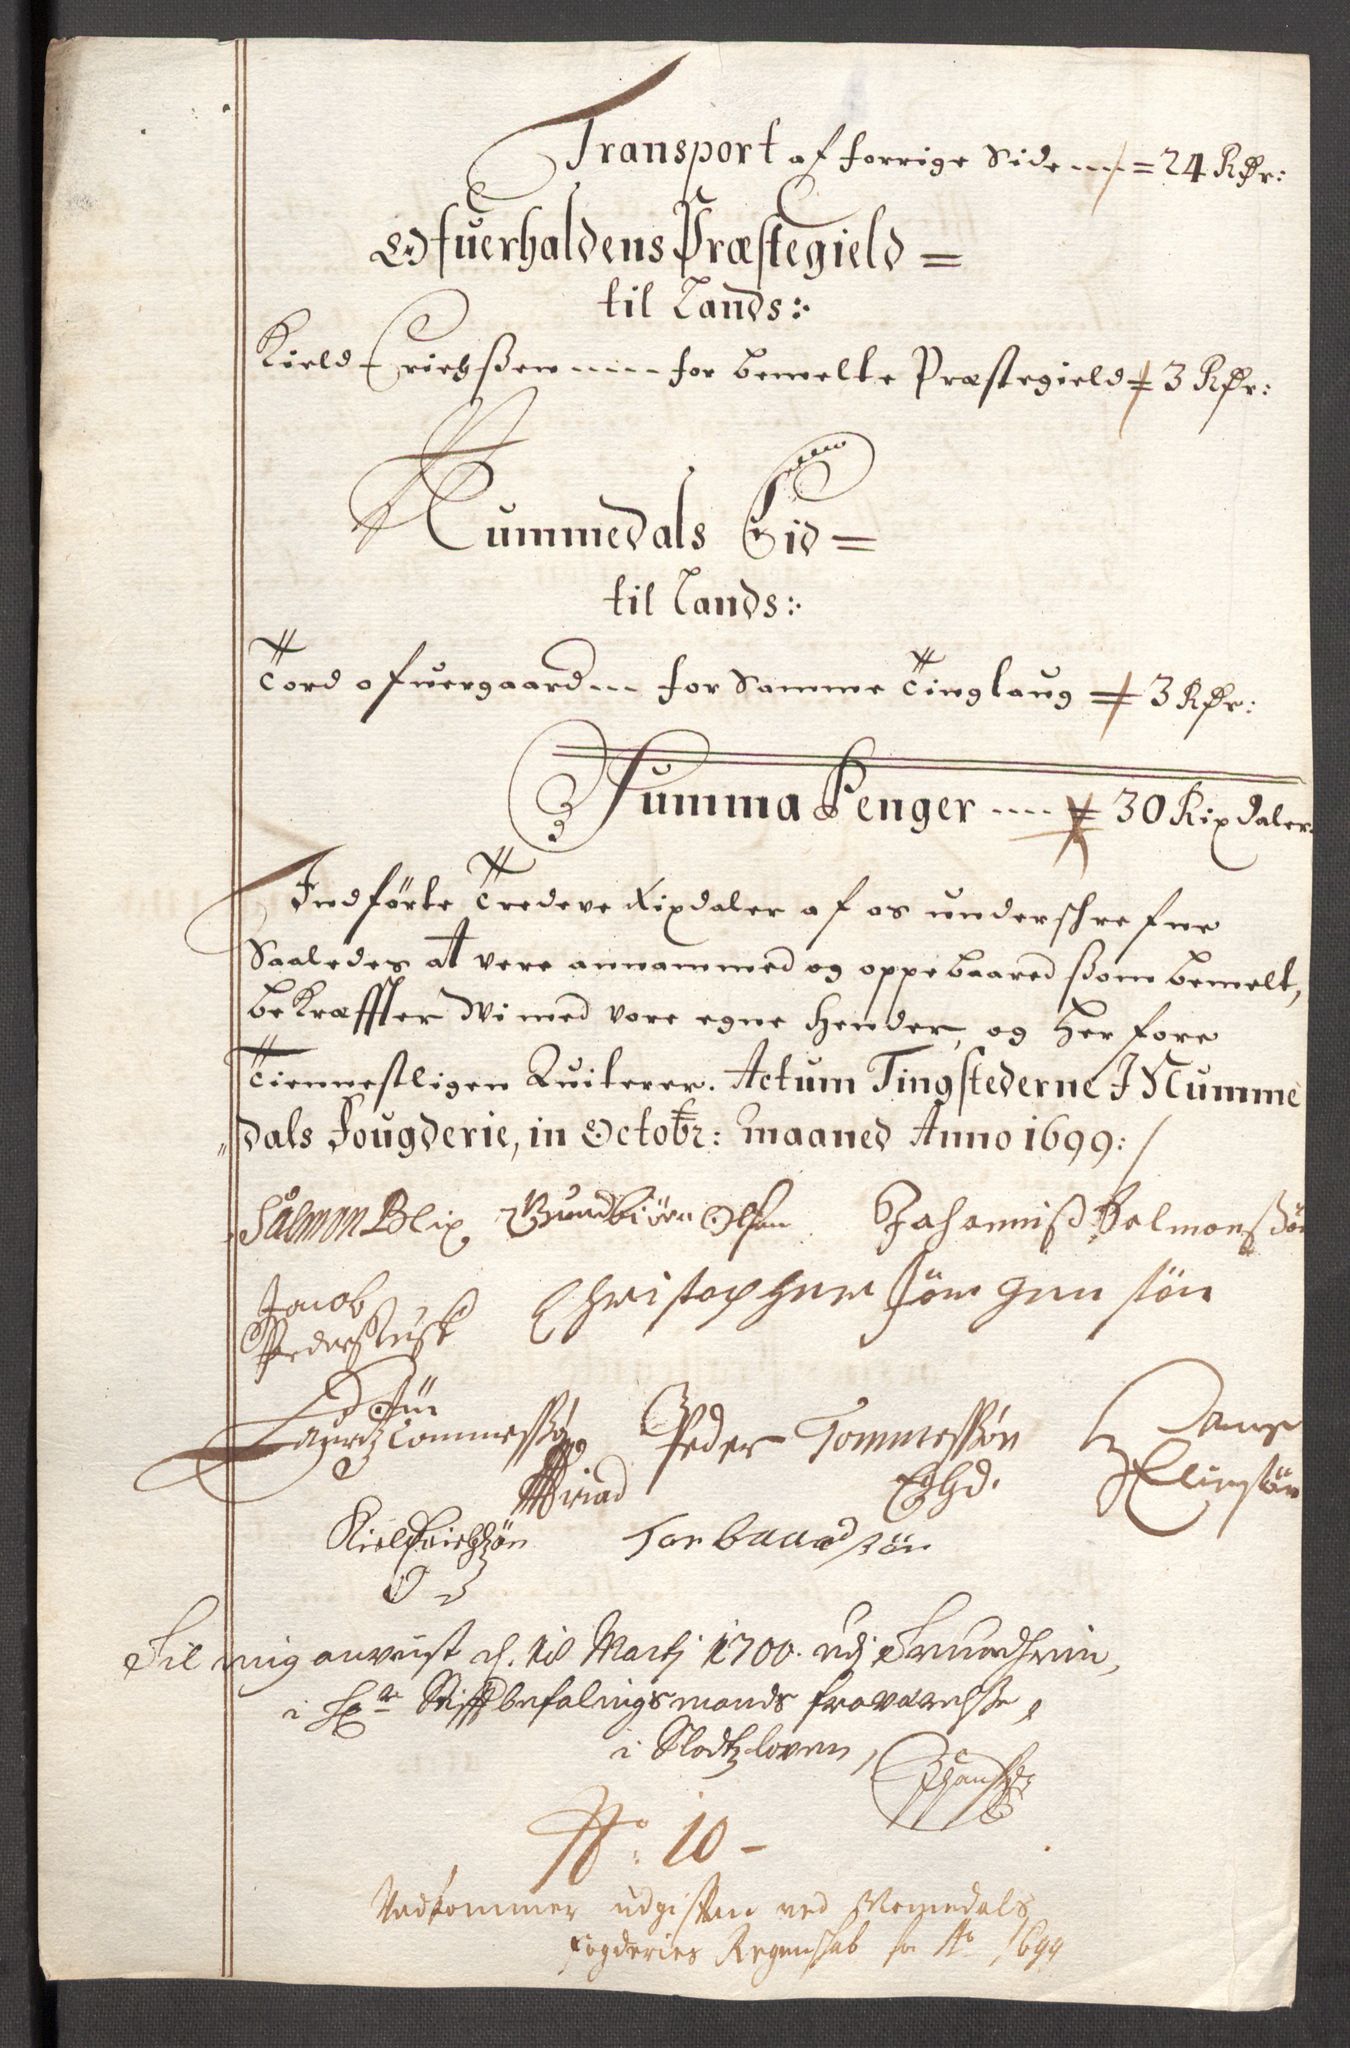 Transport af forrige Side ---- = 24 Rdr:
Ofuerhaldens Præstegield =
til Lands:
Kield Erichßen ---- for bemelte Præstegield = 3 Rdr:
Nummedals Eid =
til Lands:
Tord ofuergaard --- for Samme Tinglaug = 3 Rdr:
Summa Penger ---- = 30 Rixdaler
Indførte Tredeve Rixdaler af os underschrefne
Saaledes at vere annammed og oppebaared ßom bemelt,
bekræffter Wi med vore egne Hender, og Her fore
Tiennestligen Quiterer. Actum Tingstederne I Numme
dals Fougderie, in Octobr: maaned Anno 1699:
Salmon Blix Gundbiørn Olsen Johanniß Salmonßøn
Jacob Christopher Jørgensøn
Pederß
Lauritz Tommeßøn Peder Tommeßøn
Kield Erichßøn Tor baardßøn
Til mig anvist d. 18 Martj 1700. udj Trundheim,
i Hr Stifftbefalingsmands fraværelse,
i Slodtzloven,
No. 10 -
Vedkommer udgiften ved Nommedals
fogderies Regenskab for Ao 1699